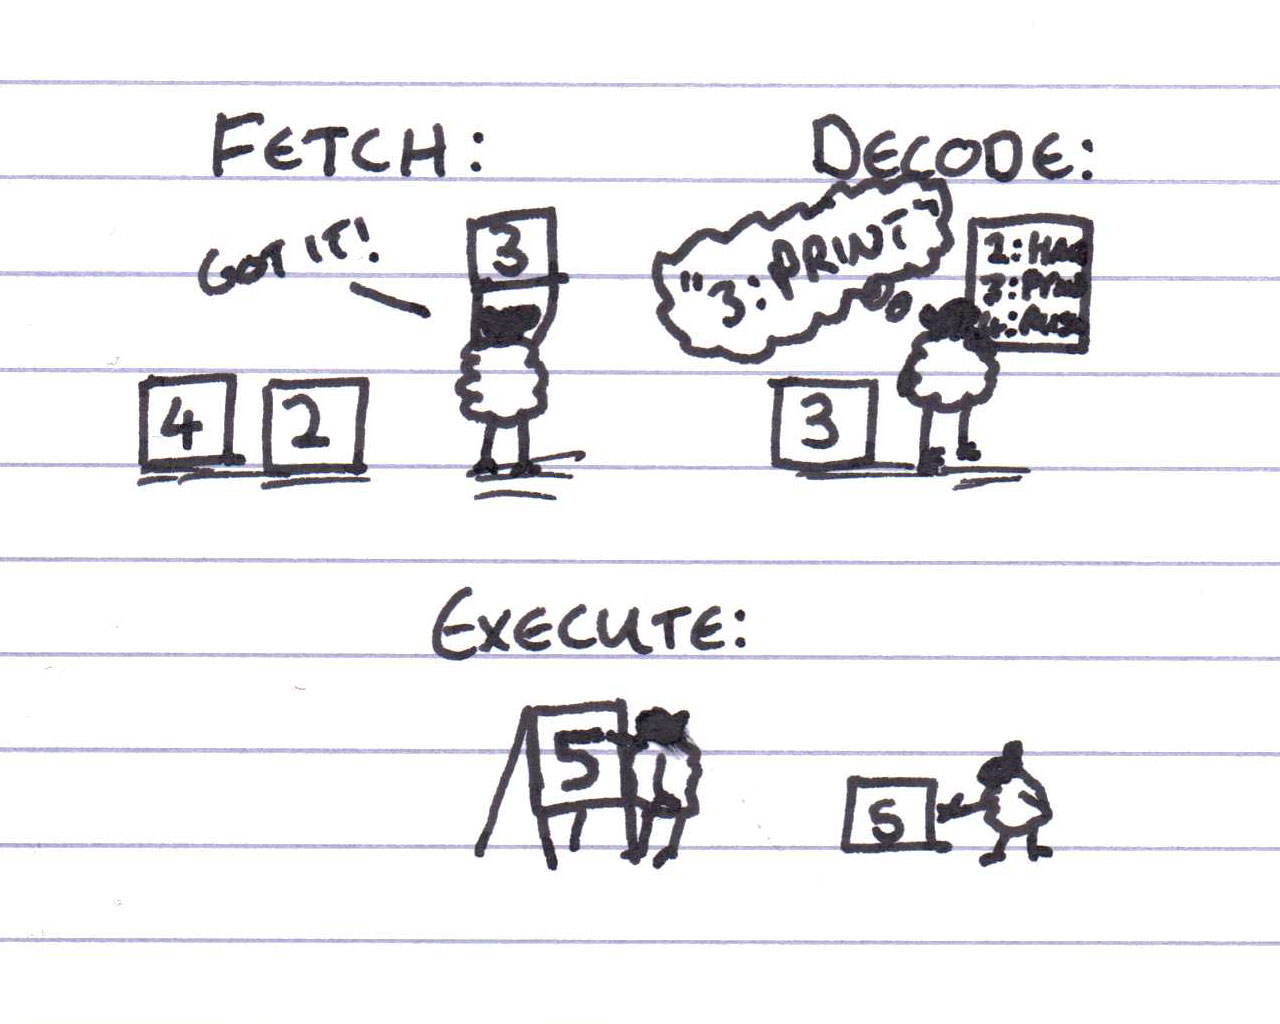 FETCH:
GOT IT!
3
4 2
DECODE:
"3: PRINT"
2: HA
3: PRIN
4:
3
EXECUTE:
5
5